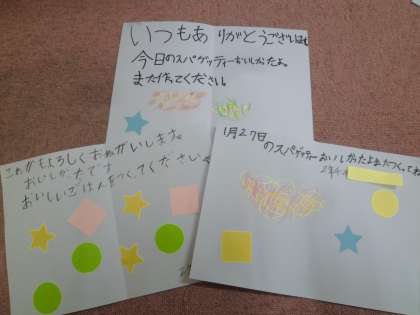 いつもありがとうございます
今日のスパゲッティーおいしかたよ。
また作ってください。
これからもよろしくおねがいします。
おいしかたです
おいしいごはんをつくてください。
1月27日
のスパゲッティーおいしかたよまたつくってね